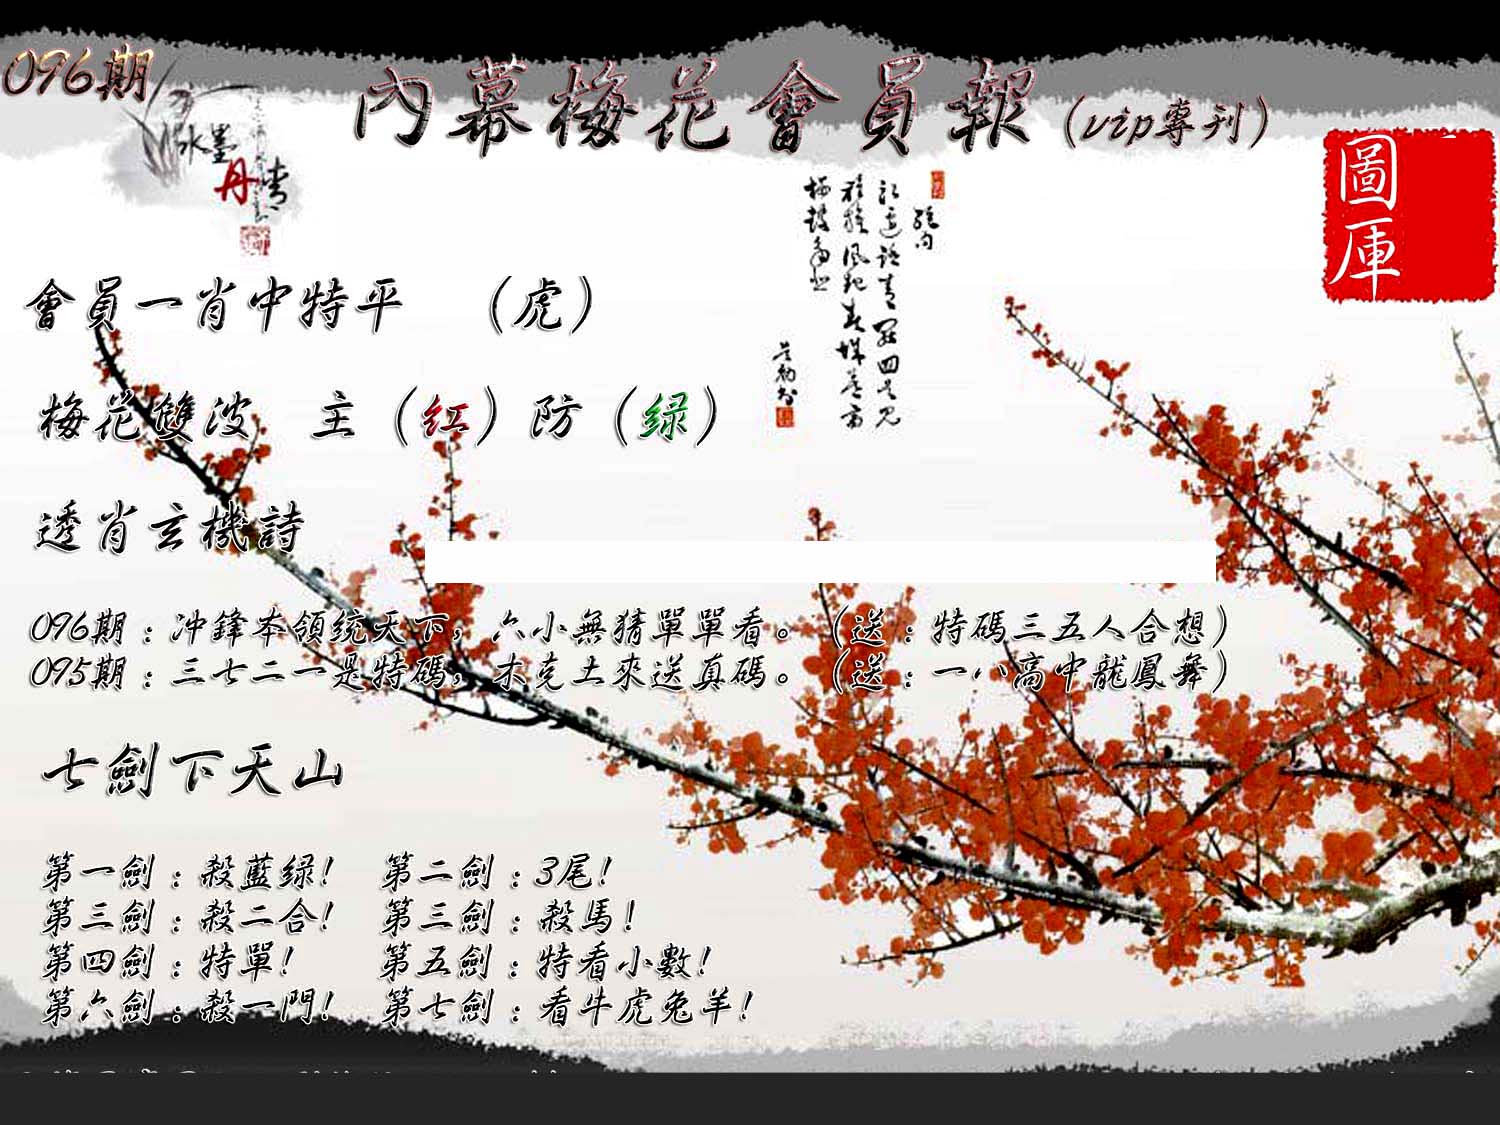 096期
內幕梅花會員報(vip專刊)
水墨
丹青
圖庫
會員一肖中特平 (虎)
梅花雙波 主(红)防(绿)
透肖玄機詩
096期:冲鋒本領统天下,六小無猜單單看。(送:特碼三五人合想)
095期:三七二一是特碼,木克土來送真碼。(送:一八高中龍鳳舞)
七劍下天山
第一劍:殺藍绿! 第二劍:3尾!
第三劍:殺二合! 第三劍:殺馬!
第四劍:特單! 第五劍:特看小數!
第六劍:殺一門! 第七劍:看牛虎兔羊!